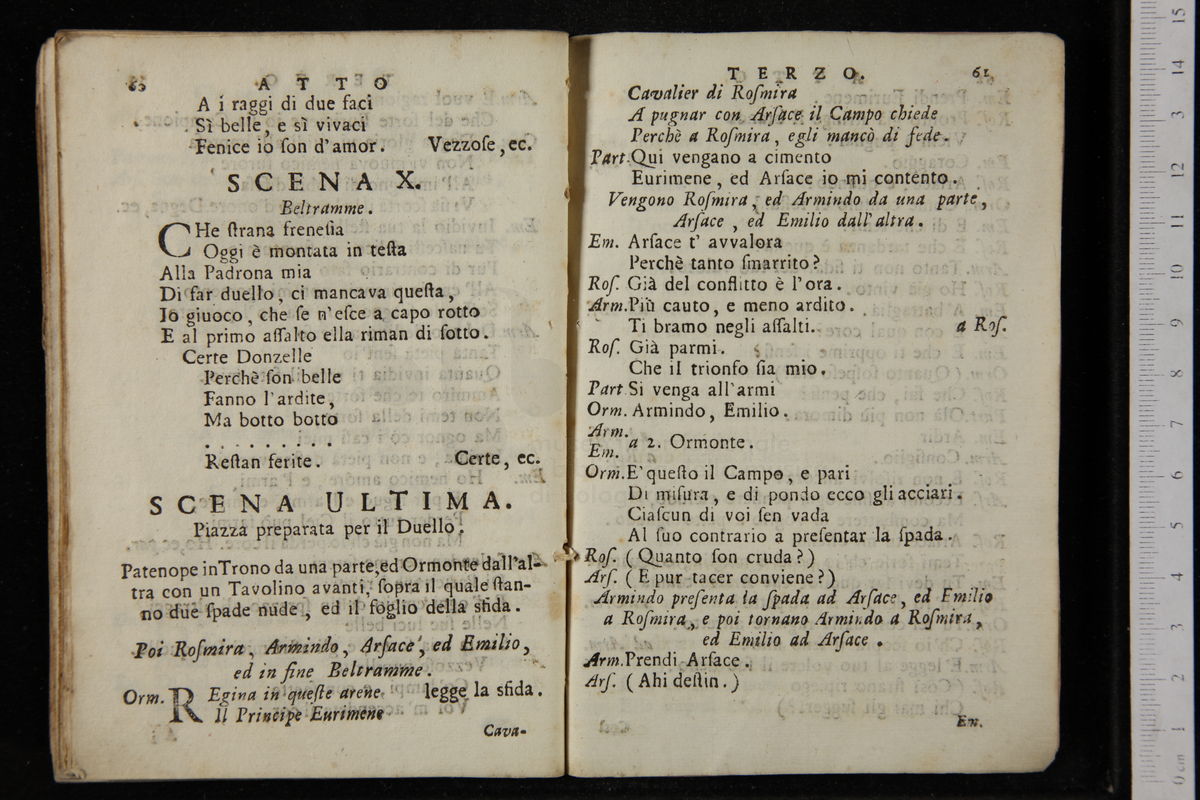 60 ATTO
A i raggi di due faci
Sì belle, e sì vivaci
Fenice io ſon d'amor. Vezzoſe, ec.
SCENA X.
Beltramme.
CHe ſtrana freneſia
Oggi è montata in teſta
Alla Padrona mia
Di far duello, ci mancava queſta,
Io giuoco, che ſe n'eſce a capo rotto
E al primo aſſalto ella riman di ſotto.
Certe Donzelle
Perchè ſon belle
Fanno l'ardite,
Ma botto botto
. . . . . . . . . .
Reſtan ferite. Certe, ec.
SCENA ULTIMA.
Piazza preparata per il Duello.
Patenope in Trono da una parte, ed Ormonte dall'al-
tra con un Tavolino avanti, ſopra il quale ſtan-
no due ſpade nude, ed il foglio della sfida.
Poi Roſmira, Armindo, Arſace, ed Emilio,
ed in fine Beltramme.
Orm. REgina in queſte arene legge la sfida.
Il Principe Eurimene
Cava-
TERZO. 61
Cavalier di Roſmira
A pugnar con Arſace il Campo chiede
Perchè a Roſmira, egli mancò di fede.
Part. Qui vengano a cimento
Eurimene, ed Arſace io mi contento.
Vengono Roſmira, ed Armindo da una parte,
Arſace, ed Emilio dall'altra.
Em. Arſace t' avvalora
Perchè tanto ſmarrito?
Roſ. Già del conflitto è l'ora.
Arm. Più cauto, e meno ardito.
Ti bramo negli aſſalti. a Roſ.
Roſ. Già parmi.
Che il trionfo ſia mio.
Part Si venga all'armi
Orm. Armindo, Emilio.
Arm.
Em. a 2. Ormonte.
Orm. E' queſto il Campo, e pari
Di miſura, e di pondo ecco gli acciari.
Ciaſcun di voi ſen vada
Al ſuo contrario a preſentar la ſpada.
Roſ. (Quanto ſon cruda?)
Arſ. (E pur tacer conviene?)
Armindo preſenta la ſpada ad Arſace, ed Emilio
a Roſmira, e poi tornano Armindo a Roſmira,
ed Emilio ad Arſace.
Arm. Prendi Arſace.
Arſ. (Ahi deſtin.)
Em.
0 cm 1 2 3 4 5 6 7 8 9 10 11 12 13 14 15